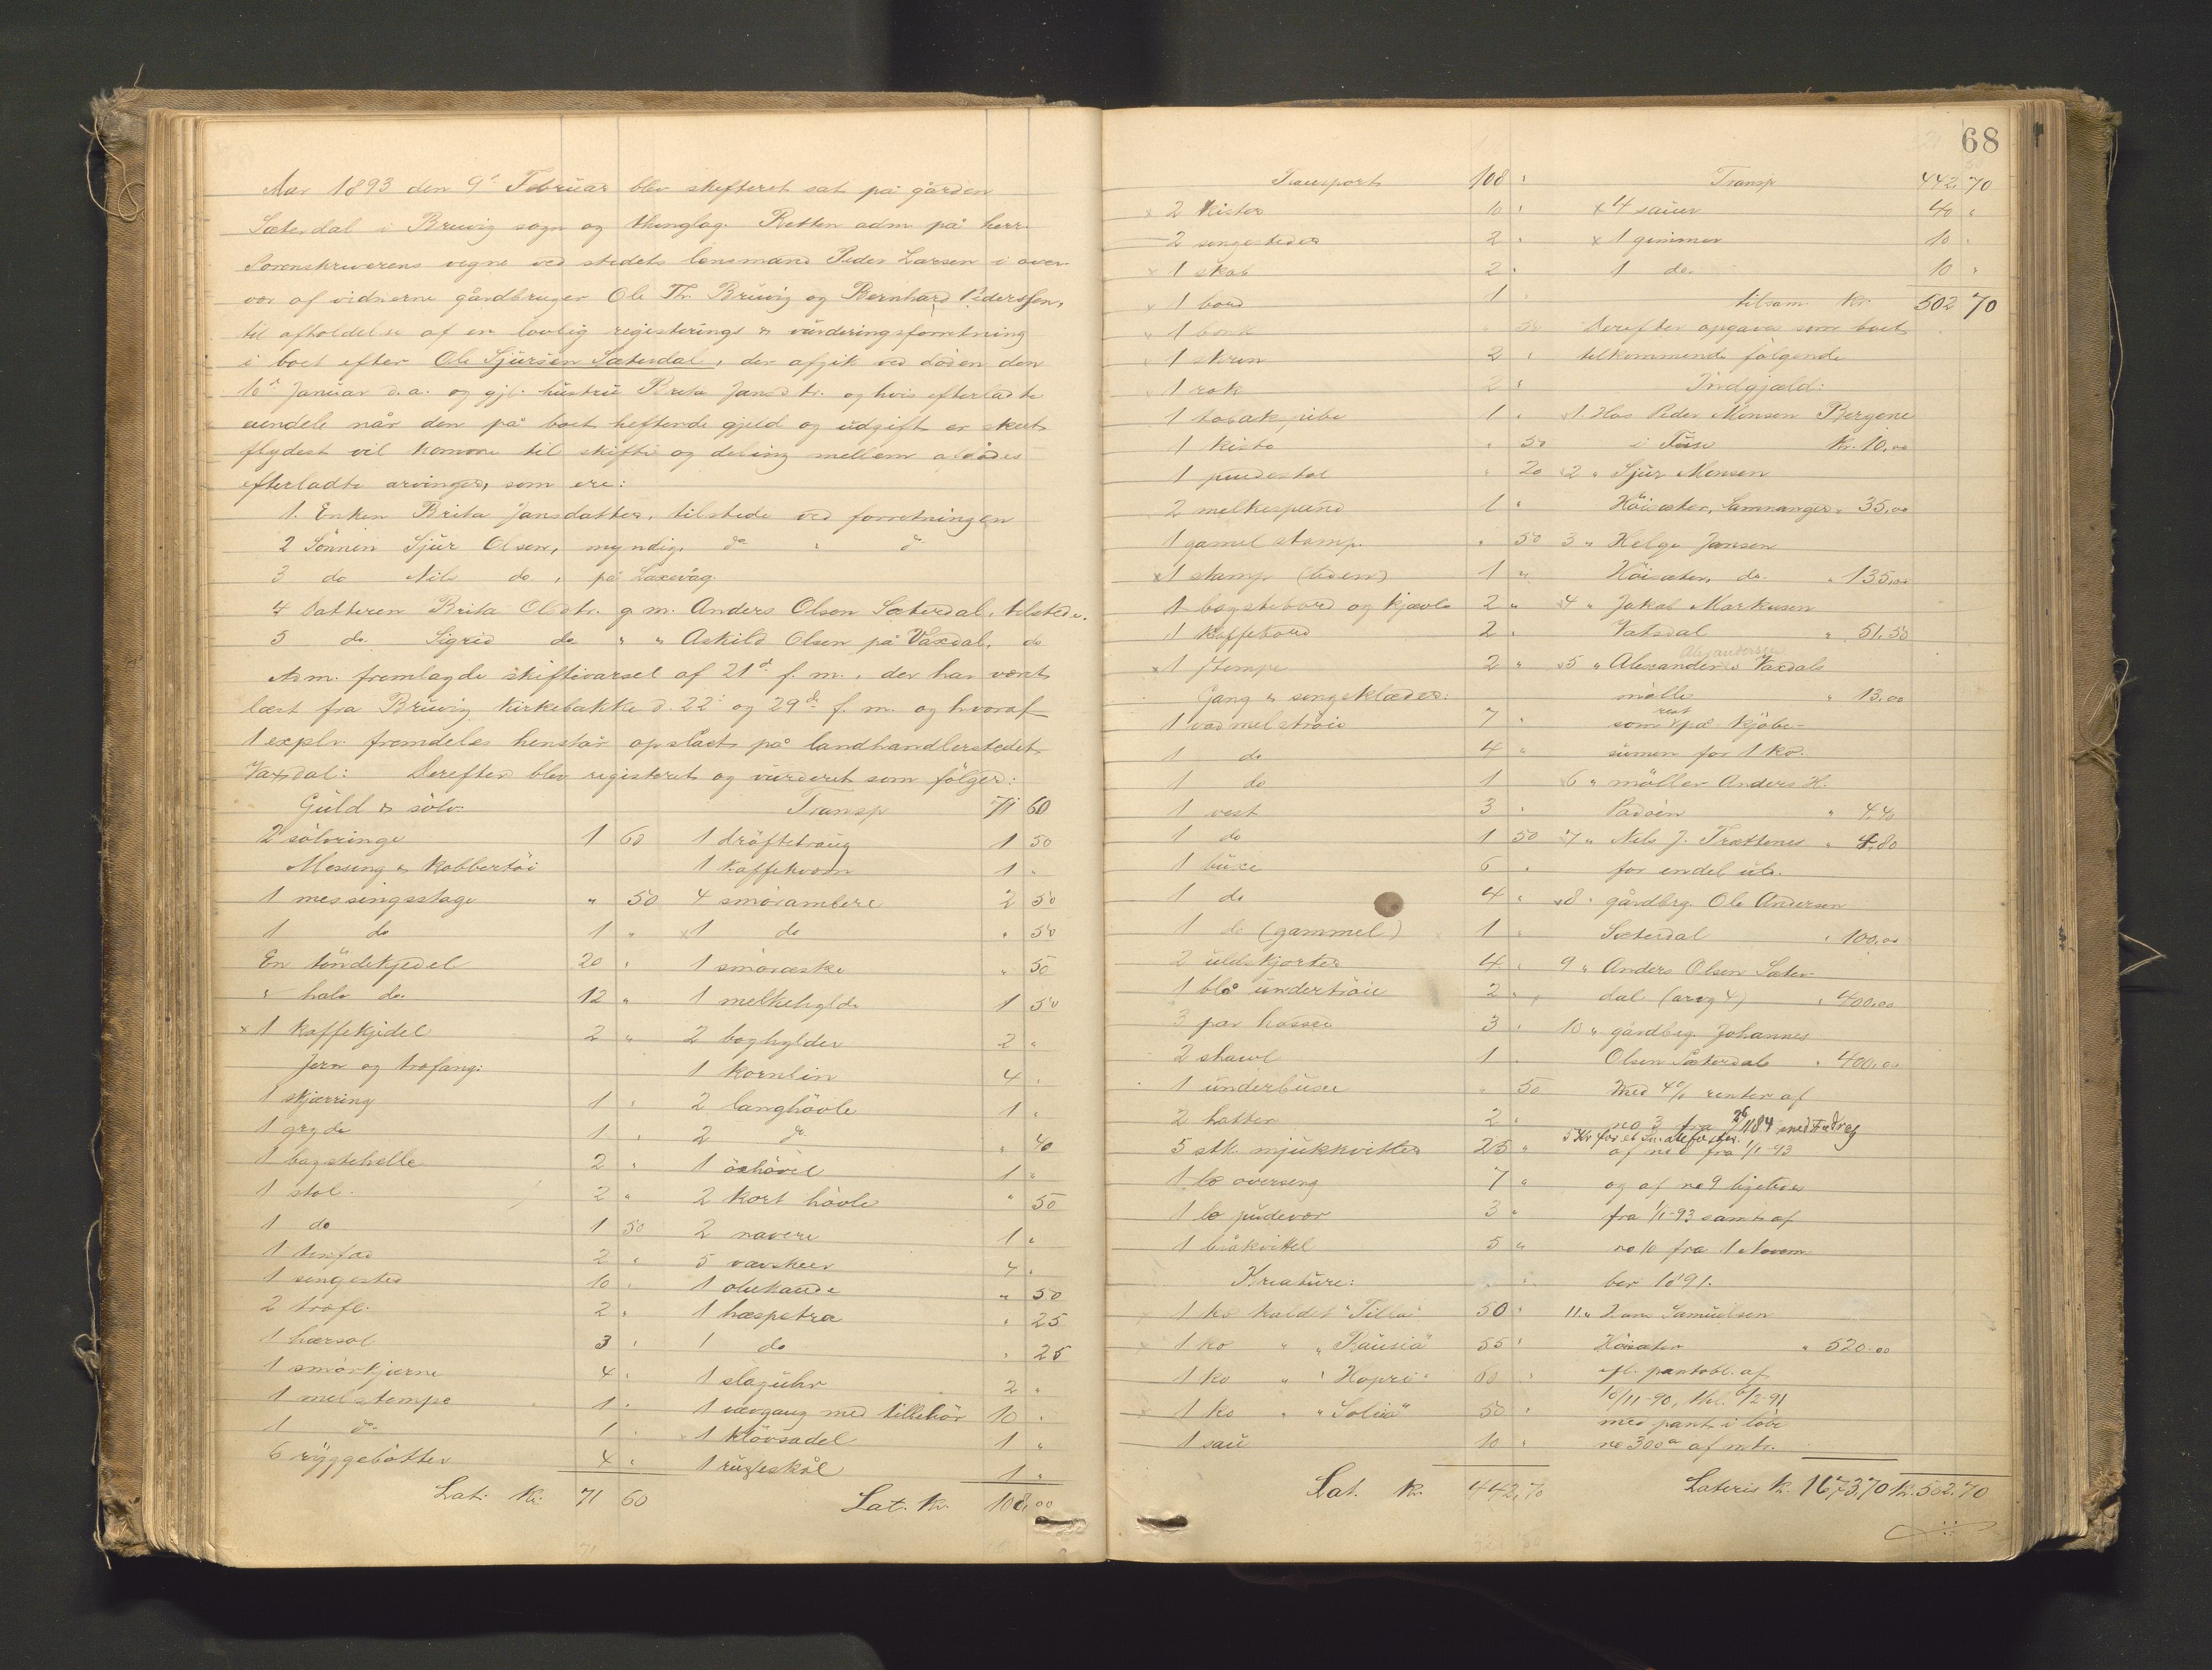 Aar 1893 den 9d Februar blev skifteret sat på gården
Sæterdal i Bruvig sogn og thinglag. Retten adm. på herr
Sorenskriverens vegne ved stedets lensmand Peder Larsen i over-
vær af vidnerne gårdbruger Ole Th. Bruvig og Bernhard Pederssen,
til afholdelse af en lovlig registerings & vurderingsforretning
i boet efter Ole Sjursen Sæterdal, der afgik ved døden den
10d Januar d.a. og gjl. hustru Brita Jansdtr. og hvis efterladte
eiendele når den på boet heftende gjeld og udgift er skeet
flydest vil komme til skifte og deling mellem afdødes
efterladte arvinger, som ere:
1. Enken Brita Jansdatter, tilstede ved forretningen
2 Sönnen Sjur Olsen, myndig, do " do
3 do Nils do, på Laxevåg.
4 Datteren Brita Olsdtr. g. m. Anders Olsen Sæterdal, tilstede.
5 do. Sigrid do " " Askild Olsen på Vaxdal, do
Adm. fremlagde skiftevarsel af 21d f. m., der har været
læst fra Bruvig kirkebakke d. 22d og 29d f. m. og hvoraf
1 explr. fremdeles henstår opslået på landhandlerstedet
Vaxdal: Derefter blev registeret og vurderet som fölger:
Guld & sölv.
2 sölvringe 1 60
Messing & Kobbertöi
1 messingsstage " 50
1 do 1 "
En töndekjedel 20 "
" halv do. 12 "
x 1 kaffekjedel 2 "
Jern og træfang:
1 skjærring 1 "
1 gryde 1 "
1 bagstehelle 2 "
1 stol. 2 "
1 do 1 50
1 tinfad 2 "
1 sengested 10 "
2 træfl. 2 "
1 hærsal 3 "
1 smörkjærne 4 "
1 melstampe 1 "
1 do 1 "
6 ryggebötter 4 "
Lat. Kr. 71 60
Transp 71 60
1 dröftetraug 1 50
1 kaffekværn 1 "
4 smörambere 2 50
x 1 do " 50
1 smöræske " 50
1 melkehylde 1 50
2 boghylder 2 "
1 kornbin 4 "
2 langhövle 1 "
2 do " 40
1 öxhövel 1 "
2 kort hövle " 50
2 navere 1 "
5 vævskeer 4 "
1 oliekande " 50
1 hæspetræ " 25
1 do " 25
1 slaguhr 2 "
1 vævgang med tillehör 10 "
1 klövsadel 1 "
1 rugeskål 1 "
Lat. Kr. 108,00
68
Transport 108 "
x 2 kister 10 "
2 sengesteder 2 "
x 1 skab 2 "
x 1 bord 1 "
1 bænk " 50
1 skrin 2 "
1 rok 2 "
1 tobakspibe 1 "
1 kiste " 50
1 pudestol " 20
2 melkespand 1 "
1 gamel stamp. " 50
x 1 stamp (liden) 1 "
1 bagstebord og kjævle 2 "
1 kaffebord 2 "
x 1 stampe 2 "
Gang & sengeklæder:
1 vadmelströie 7 "
1 do 4 "
1 do 1
1 vest 3 "
1 do 1 50
1 buxe 6 "
1 do 4 "
1 do (gammel) 1 "
2 uldskjorter 4 "
1 blå undertröie 2 "
3 par hosser 3 "
2 shawl 1 "
1 underbuxe " 50
2 hatter 2 "
5 stk. mjukkvitler 25 "
1 læ overseng 7 "
1 læ pudevær 3 "
1 kvitel 5 "
Kreature:
1 ko kaldet "Tilla" 50 "
1 ko " "Rausia" 55 "
1 ko " "Hopri" 60 "
1 ko " "Solia" 50 "
1 sau 10 "
Lat. Kr. 442,70
Transp 442,70
x 4 sauer 40 "
x 1 gimmer 10 "
1 do. 10 "
tilsam. Kr. 502 70
Derefter opgaves som boet
tilkommende fölgende
Indgjæld:
1. Hos Peder Monsen Bergene
i Fuse Kr. 10,00
2 " Sjur Monsen
Höisæter, Samnanger " 35,00
3 " Helge Jansen
Höisæter, do. " 135,00
4 " Jakob Markusen
Vaksdal " 51,50
5 " Alexander Vaxdals
mölle " 13,00
som rest på kjöbe-
sumen for 1 ko.
6 " möller Anders H.
Padöen " 4,40
7 " Nils J. Trættenes " 4,80
for endel uld.
8 " gårdbrg. Ole Andersen
Sæterdal " 100,00
9 " Anders Olsen Sæter-
dal (arvg 4) " 400,00
10 " gårdbrg. Johannes
Olsen Sæterdal " 400,00
Med 4% renter af
no 3 fra 26/11 84 med Fradrag
5 Kr for et
af no 8 fra 1/1-93
og af no 9 ligeledes
fra 1/1-93 samt af
no 10 fra 1 Novem
ber 1891.
11 " Samuelsen
Höisæter " 520.00
efl. pantobl. af
10/11-90, thl. 6/2-91
med pant i löbe
no 300a af mtr.
Lateris Kr. 1673,70 Kr. 502.70